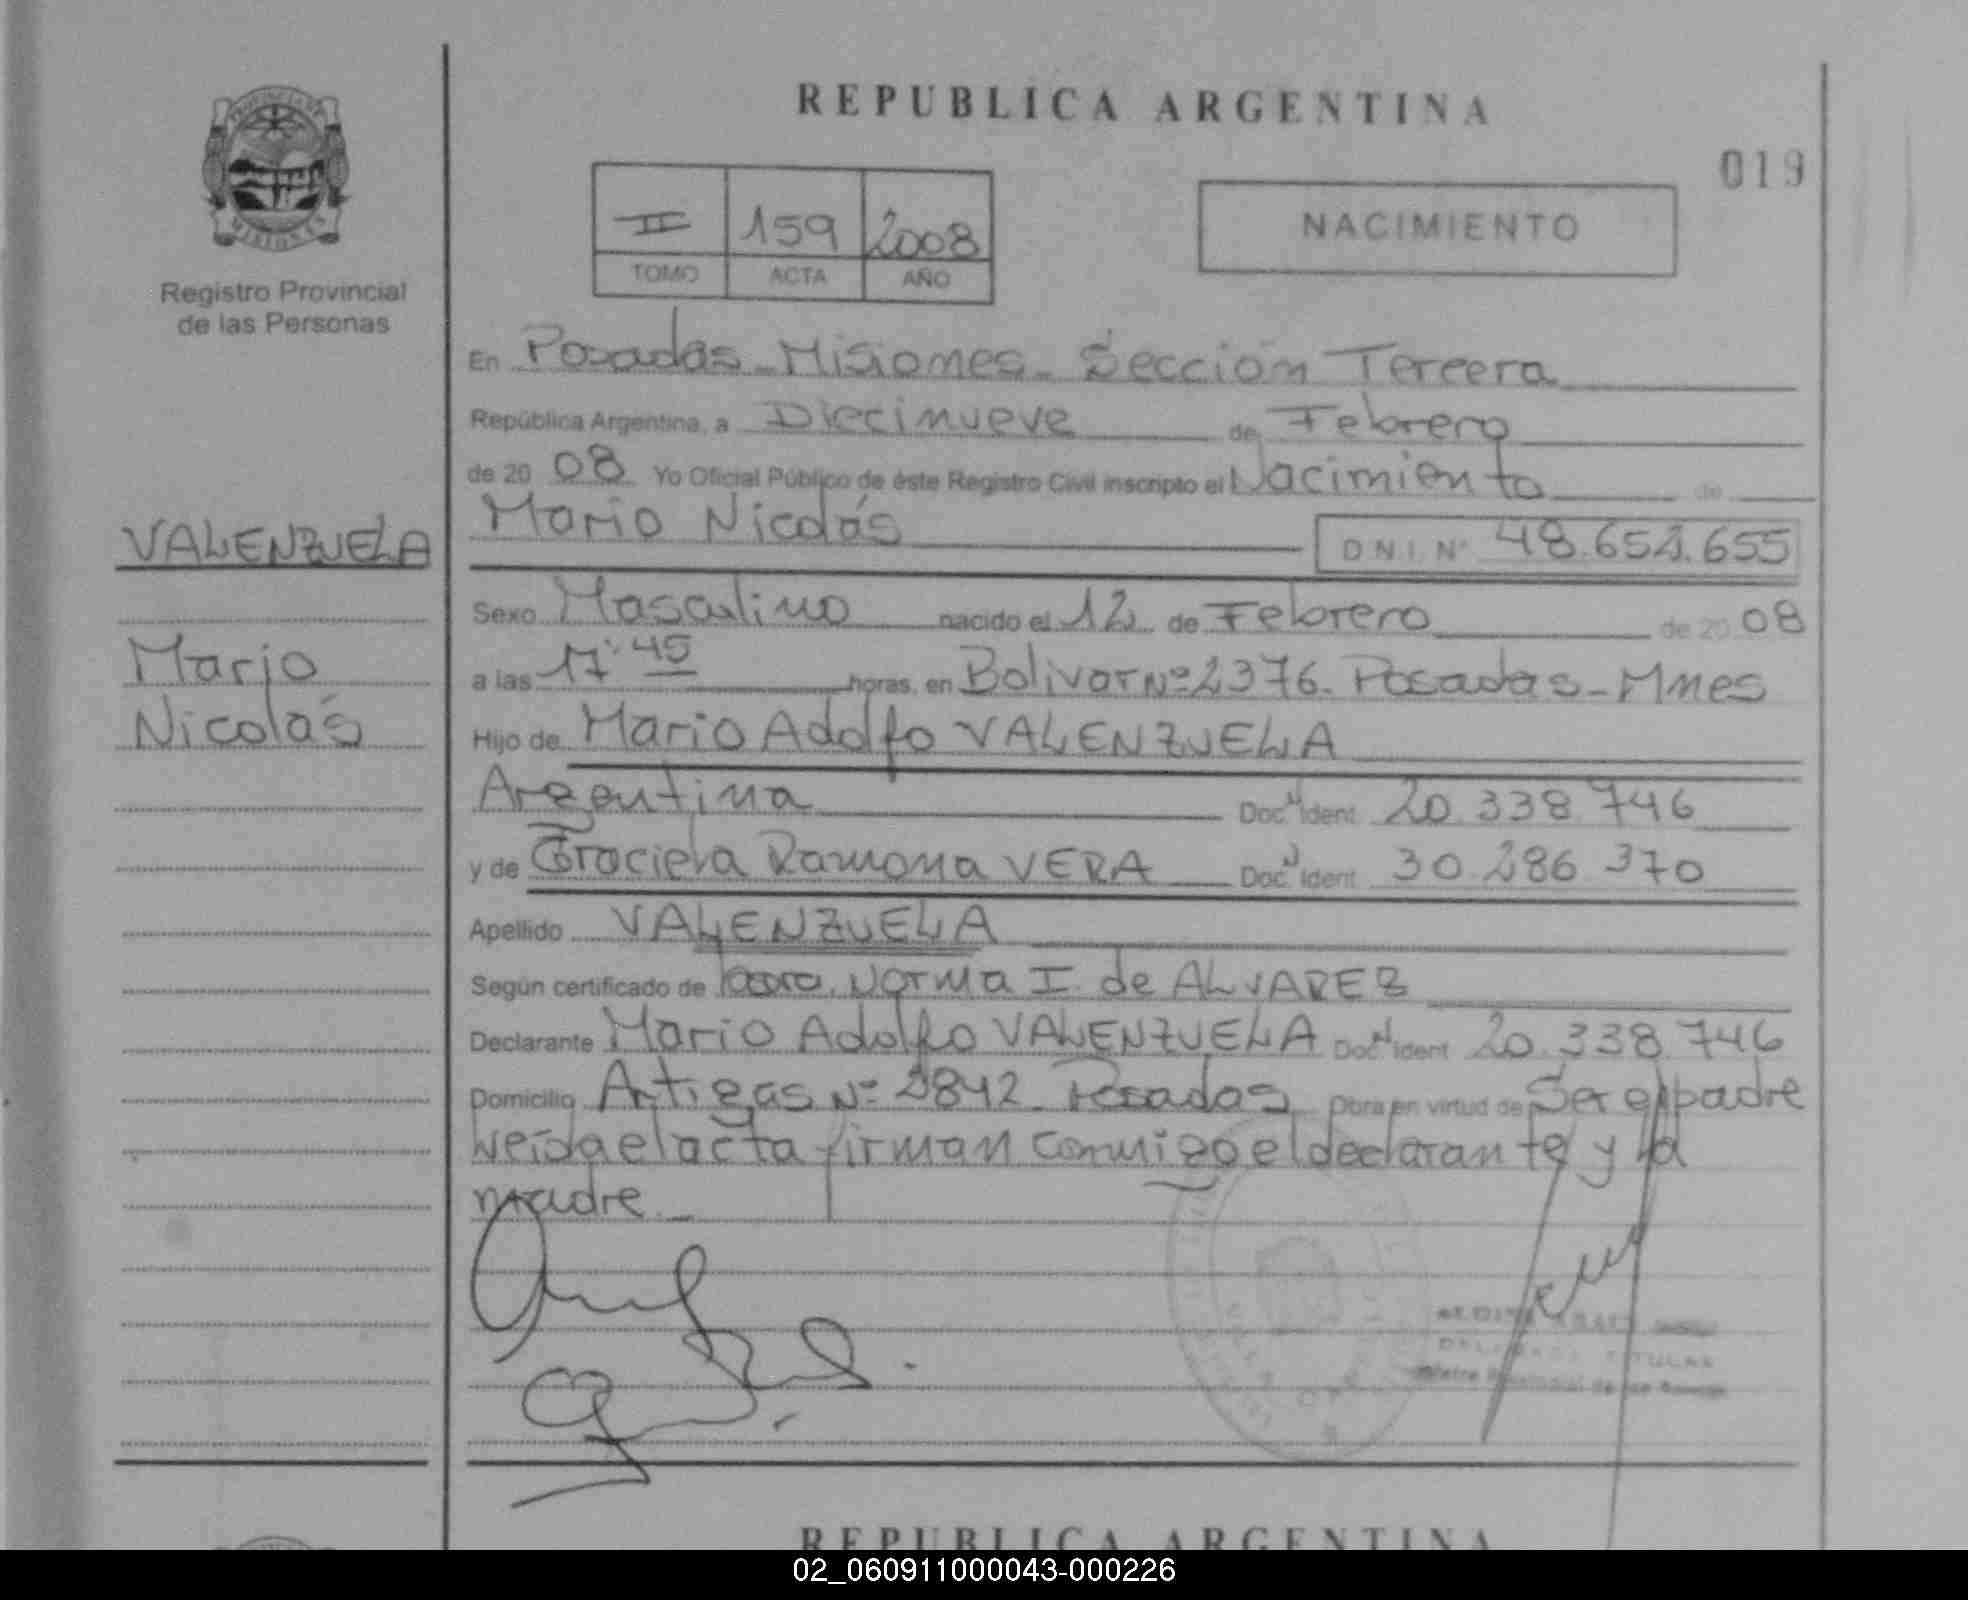 REPUBLICA ARGENTINA
019
PROVINCIA DE
MISIONES
Registro Provincial
de las Personas
II 159 2008
TOMO ACTA AÑO
NACIMIENTO
En Posadas - Misiones - Sección Tercera
República Argentina, a Diecinueve de Febrero
de 20 08 Yo Oficial Público de éste Registro Civil inscripto el Nacimiento de
Mario Nicolás D N I. Nº 48.652.655
VALENZUELA
Mario
Nicolás
Sexo Masculino nacido el 12 de Febrero de 20 08
a las 17:45 horas, en Bolivar Nº 2376. Posadas - Mnes
Hijo de Mario Adolfo VALENZUELA
Argentina Doc. Ident 20.338.746
y de Graciela Ramona VERA Doc. Ident 30.286.370
Apellido VALENZUELA
Según certificado de Norma I. de ALVAREZ
Declarante Mario Adolfo VALENZUELA Doc. Ident 20.338.746
Domicilio Artigas Nº 2842 Posadas Obra en virtud de Ser el padre
Leída el acta firman conmigo el declarante y la
madre.
TITULAR
REPUBLICA ARGENTINA
02_060911000043-000226